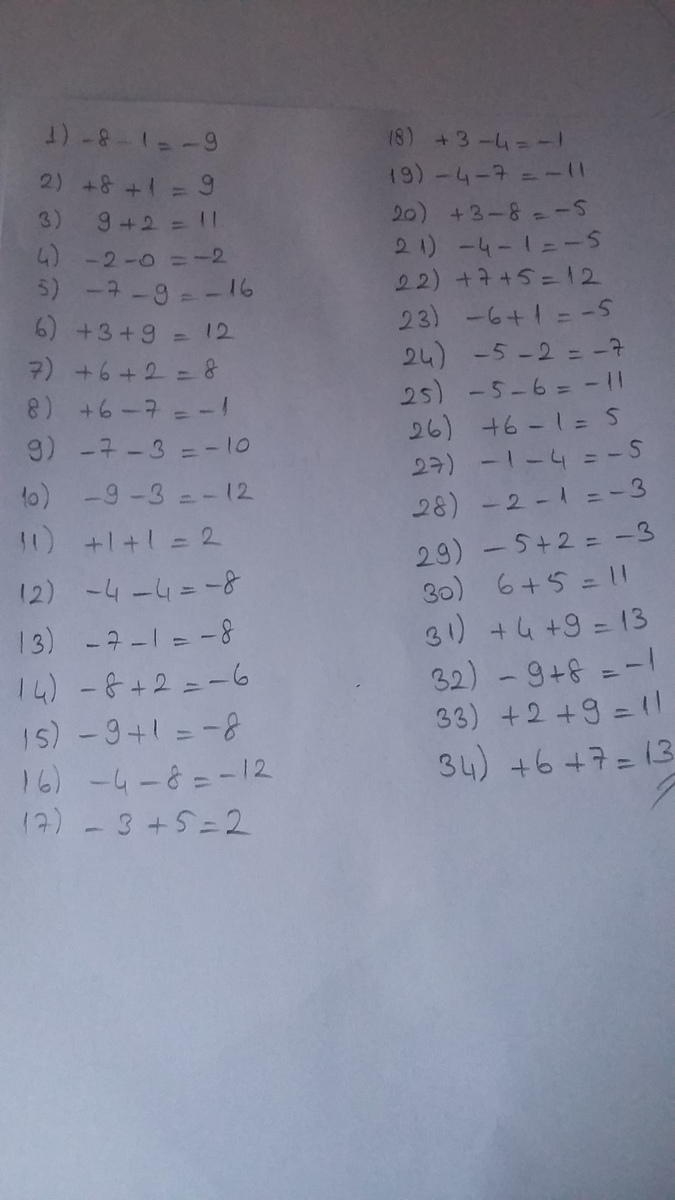 1) -8-1=-9
2) +8+1=9
3) 9+2=11
4) -2-0=-2
5) -7-9=-16
6) +3+9=12
7) +6+2=8
8) +6-7=-1
9) -7-3=-10
10) -9-3=-12
11) +1+1=2
12) -4-4=-8
13) -7-1=-8
14) -8+2=-6
15) -9+1=-8
16) -4-8=-12
17) -3+5=2
18) +3-4=-1
19) -4-7=-11
20) +3-8=-5
21) -4-1=-5
22) +7+5=12
23) -6+1=-5
24) -5-2=-7
25) -5-6=-11
26) +6-1=5
27) -1-4=-5
28) -2-1=-3
29) -5+2=-3
30) 6+5=11
31) +4+9=13
32) -9+8=-1
33) +2+9=11
34) +6+7=13